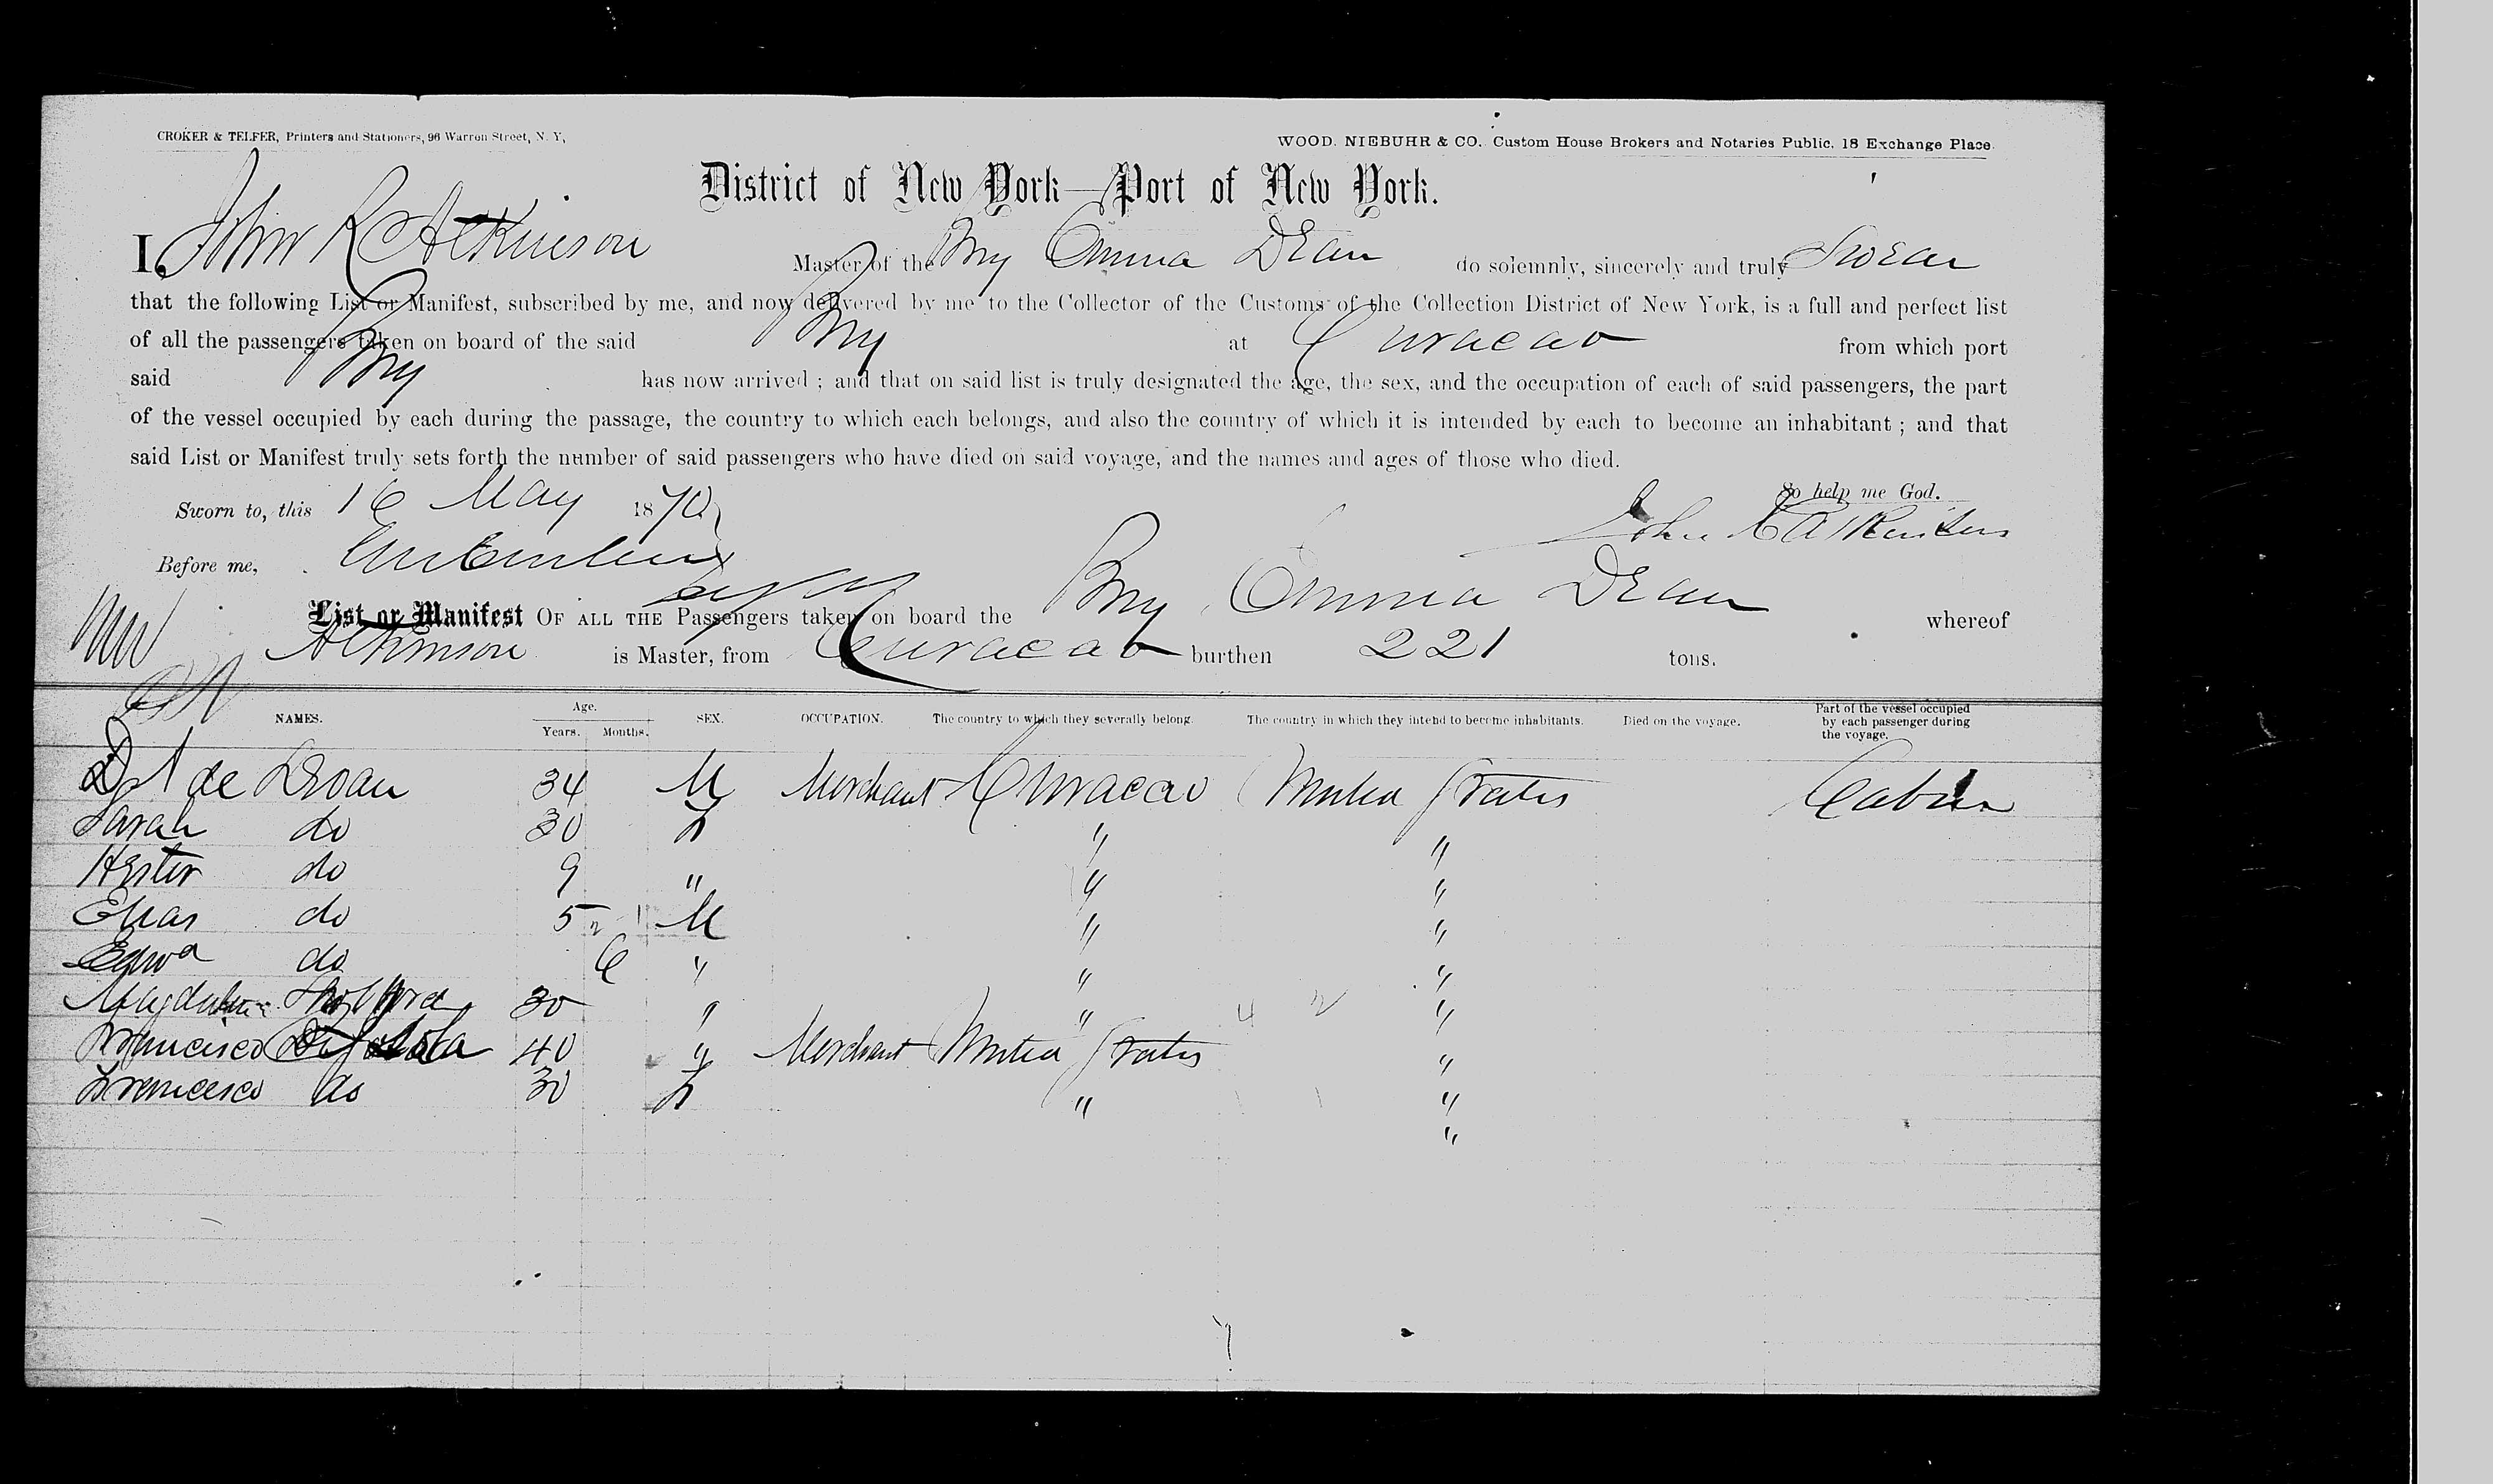 CROKER & TELFER, Printers and Stationers, 96 Warren Street, N. Y,
WOOD. NIEBUHR & CO. Custom House Brokers and Notaries Public. 18 Exchange Place
District of New York—Port of New York.
I, John R Atkinson Master of the Brig Emma Dean do solemnly, sincerely and truly Swear
that the following List or Manifest, subscribed by me, and now delivered by me to the Collector of the Customs of the Collection District of New York, is a full and perfect list
of all the passengers taken on board of the said Brig at Curacao from which port
said Brig has now arrived ; and that on said list is truly designated the age, the sex, and the occupation of each of said passengers, the part
of the vessel occupied by each during the passage, the country to which each belongs, and also the country of which it is intended by each to become an inhabitant ; and that
said List or Manifest truly sets forth the number of said passengers who have died on said voyage, and the names and ages of those who died.
So help me God.
Sworn to, this 16 May 1870
John
Before me,
List or Manifest OF ALL THE Passengers taken on board the Brig Emma Dean whereof
Atkinson is Master, from Curacao burthen 221 tons.
NAMES. Age. Years. Months. SEX. OCCUPATION. The country to which they severally belong. The country in which they intend to become inhabitants. Died on the voyage. Part of the vessel occupied by each passenger during the voyage.
de 34 M Merchant Curacao United States Cabin
Sarah do 30 F " "
Hester do 9 " " "
Elias do 5 M " "
do 6 " " "
30 " " "
Francisco 40 " Merchant United States "
Francisco do 30 F " "
"